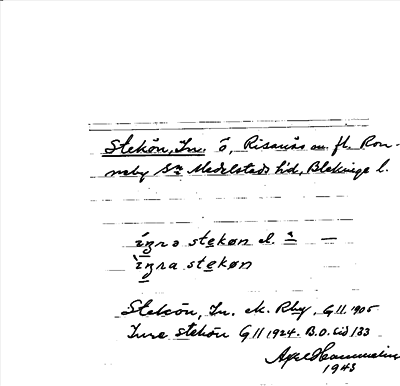 Stekön, In. ö, Risanäs om fl. Ron-
neby Sn Medelstads hd, Blekinge l.
íŋrə stekøn el. ̀ —
ìŋra stekøn
Stekön, In. ek. Rby, G II. 1905
Inre Stekön G II 1924. B.O. Cid 133
Axel
1943